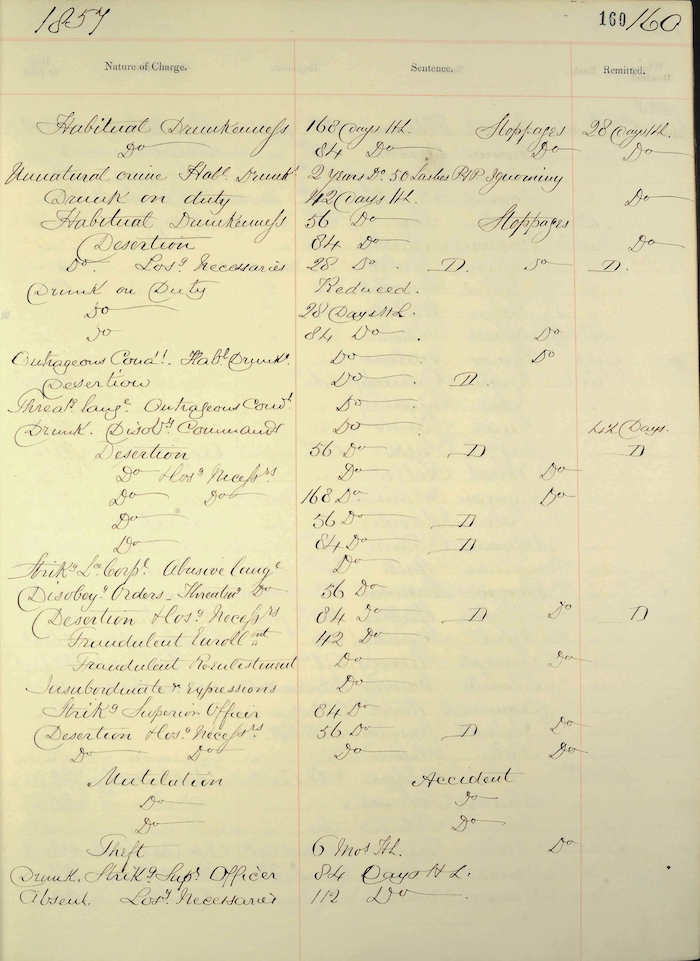 1857 160 160
Nature of Charge. Sentence. Remitted.
Habitual Drunkenness 168 Days H.L. Stoppages 28 Days H.L.
Do 84 Do Do Do
Unnatural crime Habl. Drunks. 2 Years Do. 50 Lashes Ignominy
Drunk on duty 42 Days H.L. Do
Habitual Drunkenness 56 Do Stoppages
Desertion 84 Do Do
Do. Losg. Necessaries 28 Do. D. Do D.
Drunk on Duty Reduced.
Do 28 Days H.L.
Do 84 Do. Do
Outrageous Condt. Habl. Drunks. Do Do
Desertion Do D.
Threatg. lange. Outrageous Condt. Do
Drunk. Disobg. Commands Do 42 Days.
Desertion 56 Do D D
Do & Losg. Necessrs Do Do
Do Do 168 Do. Do
Do 56 Do D
Do 84 Do D
Strikg. Lce. Corpl. Abusive Lange Do
Disobeyg. Orders - Threatng Do 56 Do
Desertion & Losg. Necessrs 84 Do D Do D
Fraudulent Enrollmt 42 Do
Fraudulent Reenlistment Do Do
Insubordinate Expressions Do
Strikg Superior Officer 84 Do
Desertion & Losg. Necessrs 56 Do D Do
Do Do Do Do
Mutilation Accident
Do Do
Do Do
Theft 6 Mos H.L. Do
Drunk. Strikg Supr. Officer 84 Days H.L.
Absent. Losg. Necessaries 112 Do